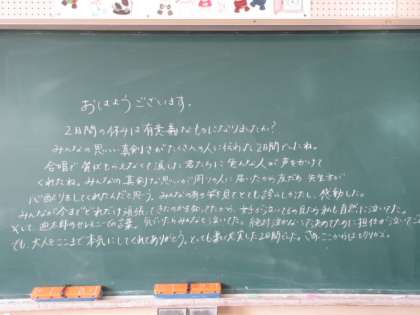 おはようございます。
2日間の休みは有意義なものになりましたか?
みんなの思い、真剣さがたくさんの人に伝わった2日間でしたね。
合唱で賞はもらえなくて涙した君たちに色んな人が声をかけて
くれたね。みんなの真剣な思いが周りの人に届いたから友だち、先生方が
心配りをしてくれたんだと思う。みんなのあの姿を見てとても誇らしかったし、感動した。
みんなが今までどれだけ頑張ってきたのか知ってたから、女子が泣いてるの見たら私も自然に泣いた。
そして の言葉。気づいたらみんなで泣いた。絶対泣かないと決めてたのに担任が泣いた
でも、大人をここまで本気にしてくれてありがとう。とっても 充実した2日間でした。さあ、ここからは切りかえ。